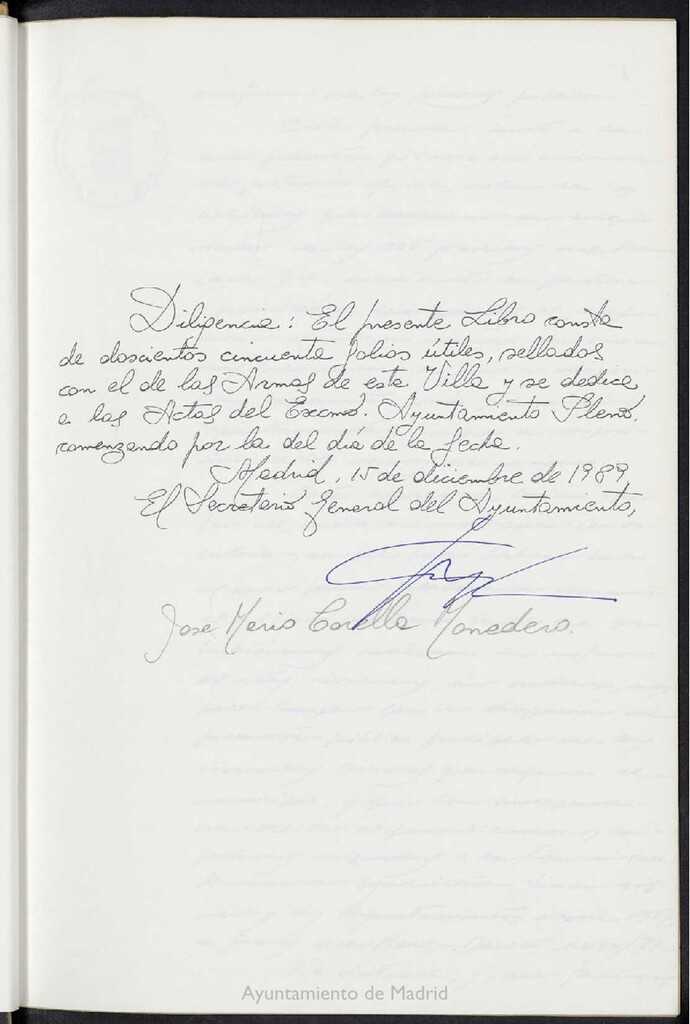 Diligencia: El presente Libro consta
de doscientos cincuenta folios útiles, sellados
con el de las Armas de esta Villa y se dedica
a las Actas del Excmo. Ayuntamiento Pleno,
comenzando por la del día de la fecha.
Madrid, 15 de diciembre de 1989,
El Secretario General del Ayuntamiento,
Jose Mario Corella Monedero.
Ayuntamiento de Madrid